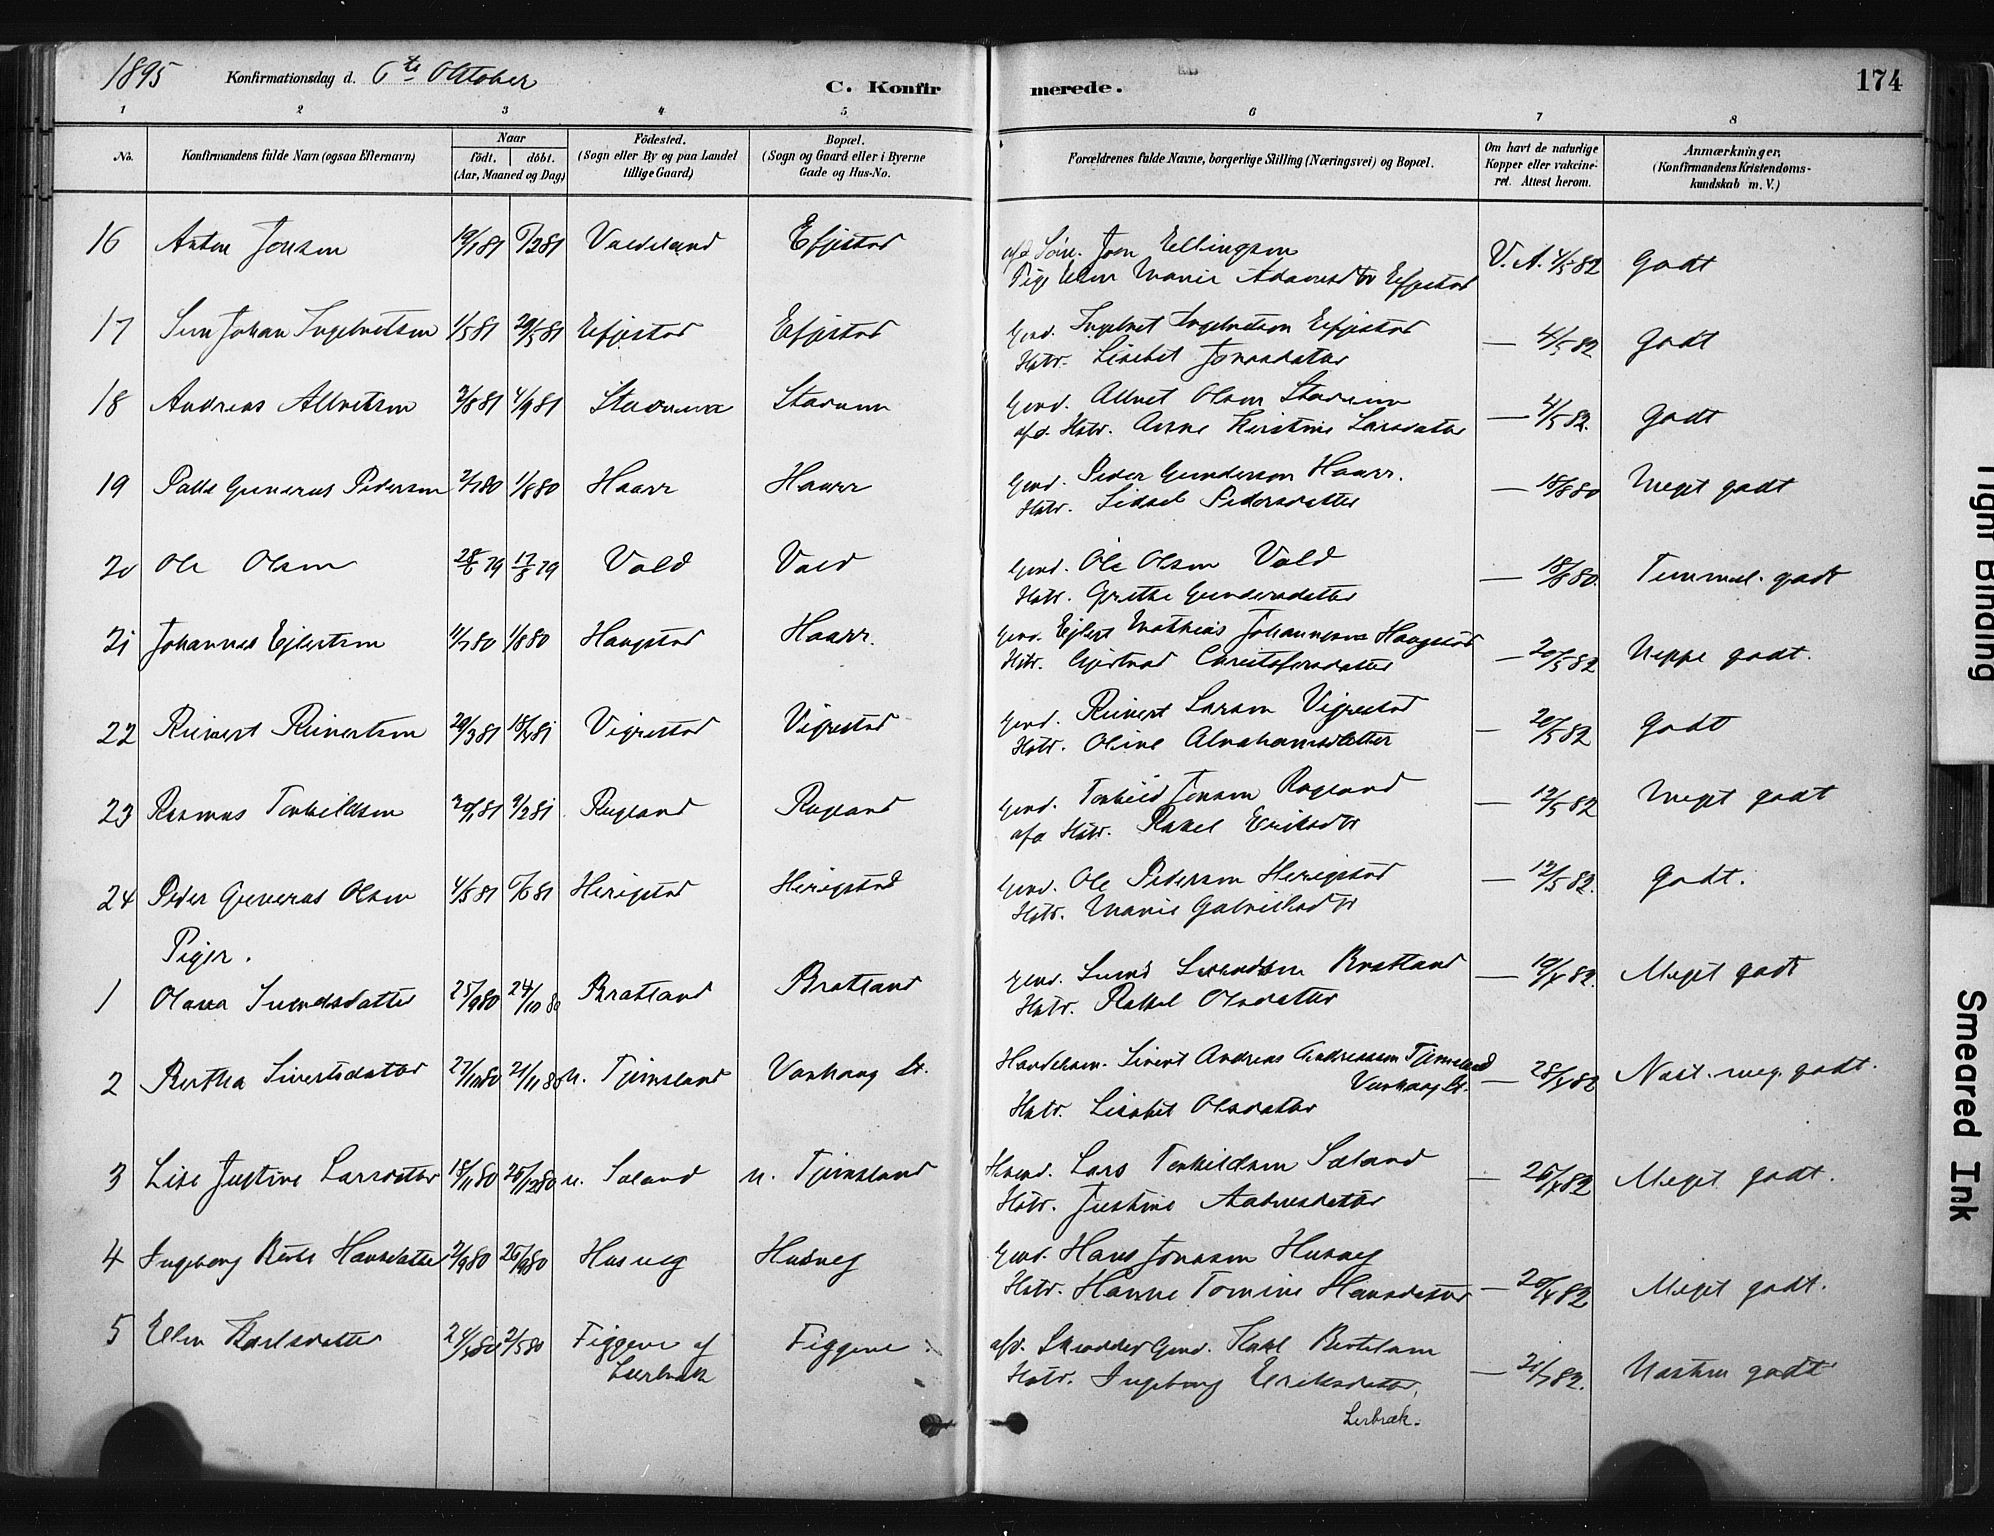 1895 Konfirmationsdag d. 6te Oktober C. Konfirmerede. 174
1 2 3 4 5 6 7 8
No. Konfirmandens fulde Navn (ogsaa Efternavn) Naar født. døbt. (Aar, Maaned og Dag) Fødested. (Sogn eller By og paa Landet tillige Gaard) Bopæl. (Sogn og Gaard eller i Byerne Gade og Hus-No. Forældrenes fulde Navne, borgerlige Stilling (Næringsvei) og Bopæl. Om havt de naturlige Kopper eller vakcineret. Attest herom. Anmærkninger, (Konfirmandens Kristendomskundskab m. V.)
16 Anton Jonsen 6/2 81 Efjestad Jon Ellingsen V. A. 4/5 82 Godt
Pige Marie Efjestad
17 Johan Ingebretsen 1/5 81 29/5 81 Efjestad Efjestad Gmd. Ingebret Ingebretsen Efjestad — 4/5 82 Godt
Hstr. Lisebet Jonasdatter
18 Andreas 4/9 81 Gmd. Olsen — 4/5 82. Godt
afd. Hstr. Anne Kirstine Larsdatter
19 Gunerius Pedersen 2/7 80 1/8 80 Haarr Haarr Gmd. Peder Gundersen Haarr. — 18/8 80 Meget godt
Hstr. Pedersdatter
20 Ole Olsen 28/6 79 17/8 79 Vold Vold Gmd. Ole Olsen Vold — 18/8 80. Temmel. godt
Hstr. Grethe Gundersdatter
21 Johannes Ejlertsen 11/7 80 1/8 80 Haugstad Haarr. Gmd. Ejlert Mathias Johannesen Haugstad — 20/5 82 Neppe godt.
Hstr.
22 Reinert Reinertsen 29/3 81 18/4 81 Vigrestad Vigrestad Gmd. Reinert Larsen Vigrestad — 20/5 82 Godt
Hstr. Oline Abrahamsdatter
23 Rasmus Torkildsen 20/1 81 9/2 81 Rugland Rugland Gmd. Torkild Jonsen Rugland — 12/5 82 Meget godt
afd Hstr. Rakel Eriksdtr
24 Peder Gunerius Olsen 6/6 81 Herigstad Herigstad Gmd. Ole Pedersen Herigstad — 12/5 82. Godt.
Hstr. Marie Gabrielsdtr
Piger.
1 25/9 80 24/10 80 Bratland Bratland Gmd. Bratland — 19/4 82. Meget godt
Hstr. Rakel Olsdatter
2 Bertha Sivertsdatter 27/10 80 21/11 80 n. Tjemsland Varhaug St. Handelsm. Sivert Andreas Andreassen Tjemsland
Varhaug St. — 28/4 82 Nast. meg. godt.
Hstr. Lisabet Olsdatter
3 Lise Justine Larsdatter 18/11 80 26/12 80 n. Saland n. Tjemsland Lars Torkildsen Saland — 26/4 82 Meget godt.
Hstr. Justine
4 Ingeborg Berte Hansdatter 2/9 80 26/9 80 Husveg Husveg Gmd. Hans Jonassen Husveg
Hstr. Hanne Tomine Hansdatter — 20/4 82 Meget godt.
5 Ellen Karlsdatter 24/4 80 2/5 80 Figgene af Figgene afd. Skrædder Gmd. Karl Bertelsen
Leerbræk Hstr. Ingeborg Eriksdatter, — 21/7 82. Næsten godt
Lerbræk.
Tight Binding
Smeared Ink